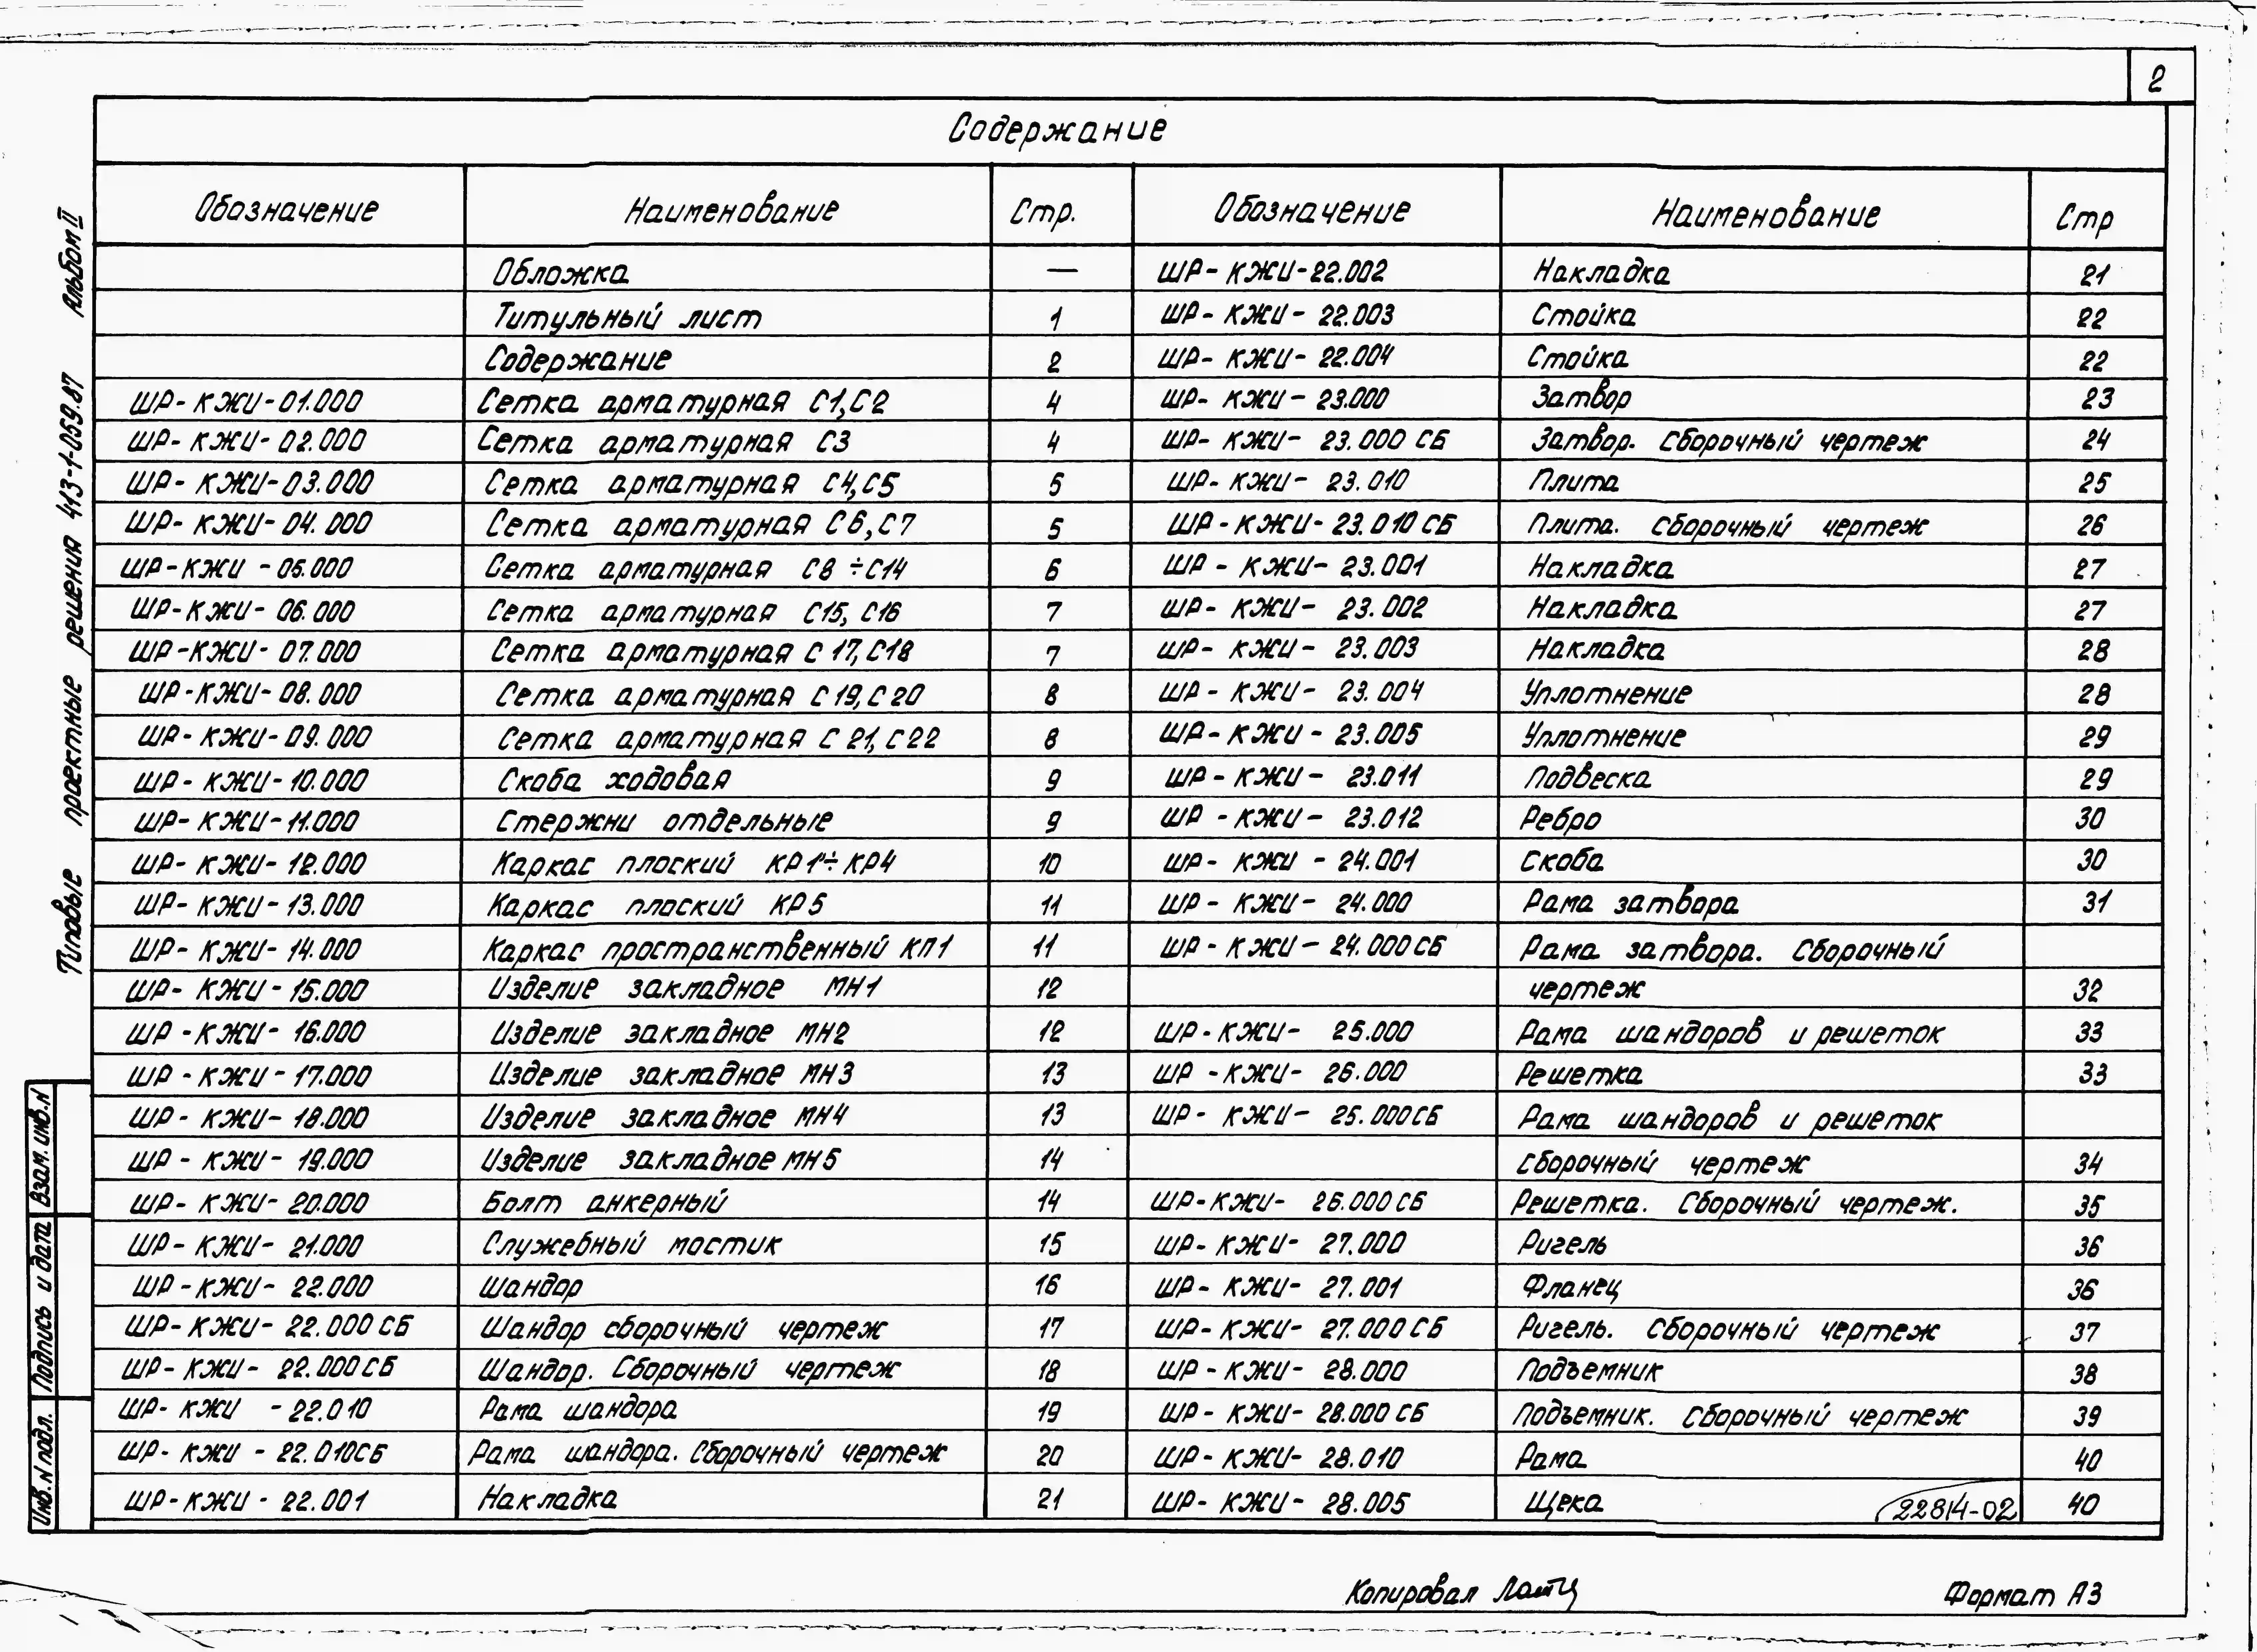 2
Содержание
Обозначение Наименование Стр. Обозначение Наименование Стр
Обложка — ШР-КЖИ-22.002 Накладка 21
Титульный лист 1 ШР-КЖИ-22.003 Стойка 22
Содержание 2 ШР-КЖИ-22.004 Стойка 22
ШР-КЖИ-01.000 Сетка арматурная С1,С2 4 ШР-КЖИ-23.000 Затвор 23
ШР-КЖИ-02.000 Сетка арматурная С3 4 ШР-КЖИ-23.000 СБ Затвор. Сборочный чертеж 24
ШР-КЖИ-03.000 Сетка арматурная С4,С5 5 ШР-КЖИ-23.010 Плита 25
ШР-КЖИ-04.000 Сетка арматурная С6,С7 5 ШР-КЖИ-23.010 СБ Плита. Сборочный чертеж 26
ШР-КЖИ-05.000 Сетка арматурная С8÷С14 6 ШР-КЖИ-23.001 Накладка 27
ШР-КЖИ-06.000 Сетка арматурная С15, С16 7 ШР-КЖИ-23.002 Накладка 27
ШР-КЖИ-07.000 Сетка арматурная С17, С18 7 ШР-КЖИ-23.003 Накладка 28
ШР-КЖИ-08.000 Сетка арматурная С19, С20 8 ШР-КЖИ-23.004 Уплотнение 28
ШР-КЖИ-09.000 Сетка арматурная С21, С22 8 ШР-КЖИ-23.005 Уплотнение 29
ШР-КЖИ-10.000 Скоба ходовая 9 ШР-КЖИ-23.011 Подвеска 29
ШР-КЖИ-11.000 Стержни отдельные 9 ШР-КЖИ-23.012 Ребро 30
ШР-КЖИ-12.000 Каркас плоский КР1÷КР4 10 ШР-КЖИ-24.001 Скоба 30
ШР-КЖИ-13.000 Каркас плоский КР5 11 ШР-КЖИ-24.000 Рама затвора 31
ШР-КЖИ-14.000 Каркас пространственный КП1 11 ШР-КЖИ-24.000 СБ Рама затвора. Сборочный
ШР-КЖИ-15.000 Изделие закладное МН1 12 чертеж 32
ШР-КЖИ-16.000 Изделие закладное МН2 12 ШР-КЖИ-25.000 Рама шандоров и решеток 33
ШР-КЖИ-17.000 Изделие закладное МН3 13 ШР-КЖИ-26.000 Решетка 33
ШР-КЖИ-18.000 Изделие закладное МН4 13 ШР-КЖИ-25.000СБ Рама шандоров и решеток
ШР-КЖИ-19.000 Изделие закладное МН5 14 сборочный чертеж 34
ШР-КЖИ-20.000 Болт анкерный 14 ШР-КЖИ-26.000 СБ Решетка. Сборочный чертеж. 35
ШР-КЖИ-21.000 Служебный мостик 15 ШР-КЖИ-27.000 Ригель 36
ШР-КЖИ-22.000 Шандор 16 ШР-КЖИ-27.001 Фланец 36
ШР-КЖИ-22.000 СБ Шандор сборочный чертеж 17 ШР-КЖИ-27.000 СБ Ригель. Сборочный чертеж 37
ШР-КЖИ-22.000 СБ Шандор. Сборочный чертеж 18 ШР-КЖИ-28.000 Подъемник 38
ШР-КЖИ-22.010 Рама шандора 19 ШР-КЖИ-28.000 СБ Подъемник. Сборочный чертеж 39
ШР-КЖИ-22.010СБ Рама шандора. Сборочный чертеж 20 ШР-КЖИ-28.010 Рама 40
ШР-КЖИ-22.001 Накладка 21 ШР-КЖИ-28.005 Щека 40
22814-02
Типовые проектные решения 413-1-059.87 Альбом II
Взам. инв. N
Подпись и дата
Инв. N подл.
Копировал
Формат А3